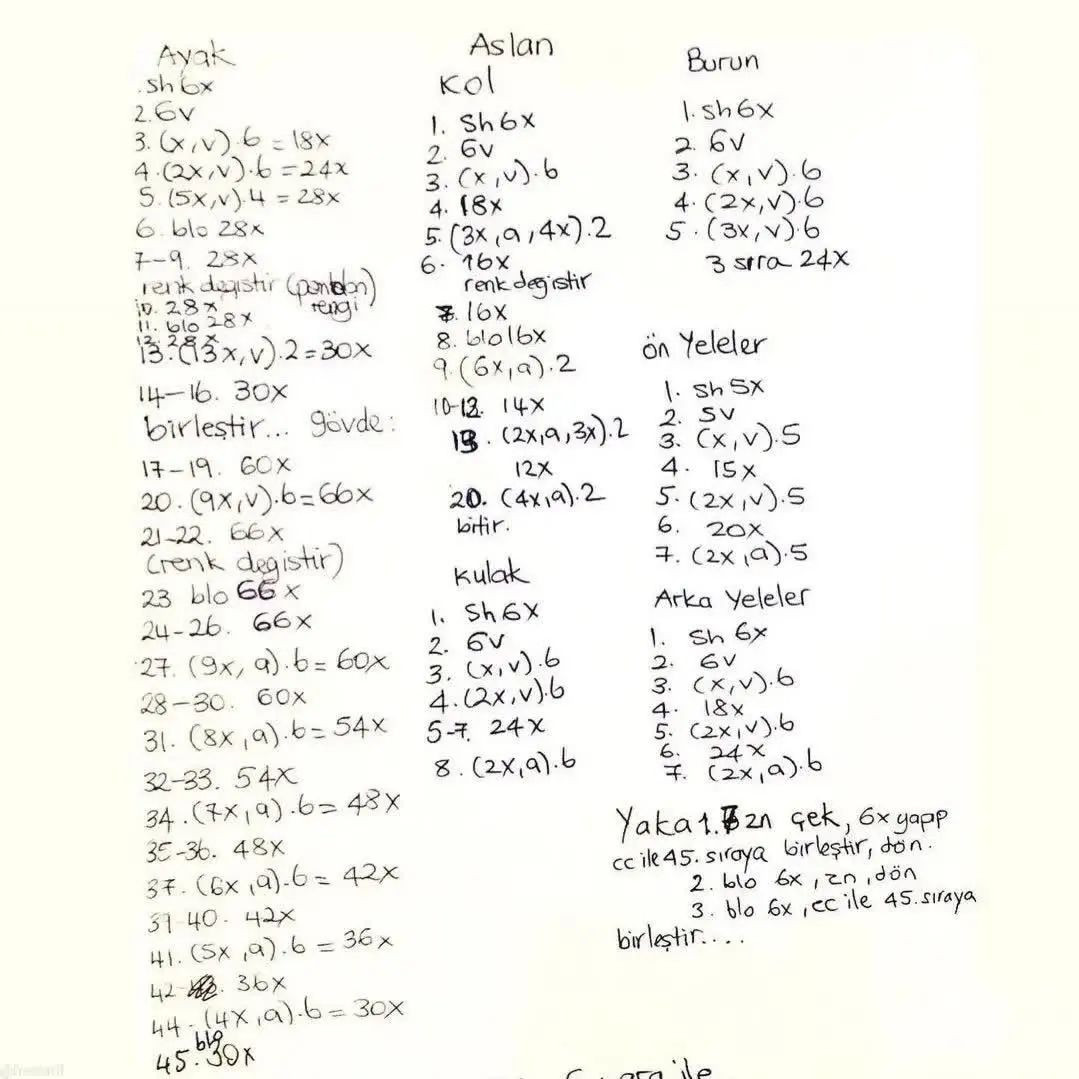 Aslan
Ayak
.sh 6x
2.6v
3. (x,v).6 = 18x
4.(2x,v).6 = 24x
5.(5x,v).4 = 28x
6. blo 28x
7-9. 28x
renk degıstır (pantolon rengi)
10. 28x
11. blo 28x
12. 28x
13. (13x,v).2=30x
14-16. 30x
birleştir... gövde:
17-19. 60x
20. (9x,v).6=66x
21-22. 66x
(renk degistir)
23 blo 66x
24-26. 66x
27. (9x, a).6= 60x
28-30. 60x
31. (8x,a).6= 54x
32-33. 54x
34.(7x,a).6= 48x
35-36. 48x
37. (6x,a).6= 42x
39-40. 42x
41. (5x,a).6 = 36x
42-. 36x
44-(4x,a).6 = 30x
45. blo 30x
Kol
1. Sh6x
2. 6v
3. (x,v).6
4. 18x
5. (3x,a,4x).2
6. 16x
renk degistir
7. 16x
8. blo16x
9.(6x,a).2
10-12. 14x
. (2x,a,3x).2
12x
20. (4x,a).2
bitir.
Kulak
1. Sh6x
2. 6v
3. (x,v).6
4.(2x,v).6
5-7. 24x
8.(2x,a).6
Burun
1. sh6x
2. 6v
3. (x,v).6
4. (2x,v).6
5. (3x,v).6
3 sıra 24x
ön Yeleler
1. sh 5x
2. 5v
3. (x,v).5
4. 15x
5. (2x,v).5
6. 20x
7. (2x,a).5
Arka Yeleler
1. sh 6x
2. 6v
3. (x,v).6
4. 18x
5. (2x,v).6
6. 24x
7. (2x,a).6
Yaka 1. zn çek, 6x yapıp
cc ile 45. sıraya birleştir, dön.
2. blo 6x, zn, dön
3. blo 6x, cc ile 45.sıraya
birleştir....
ile